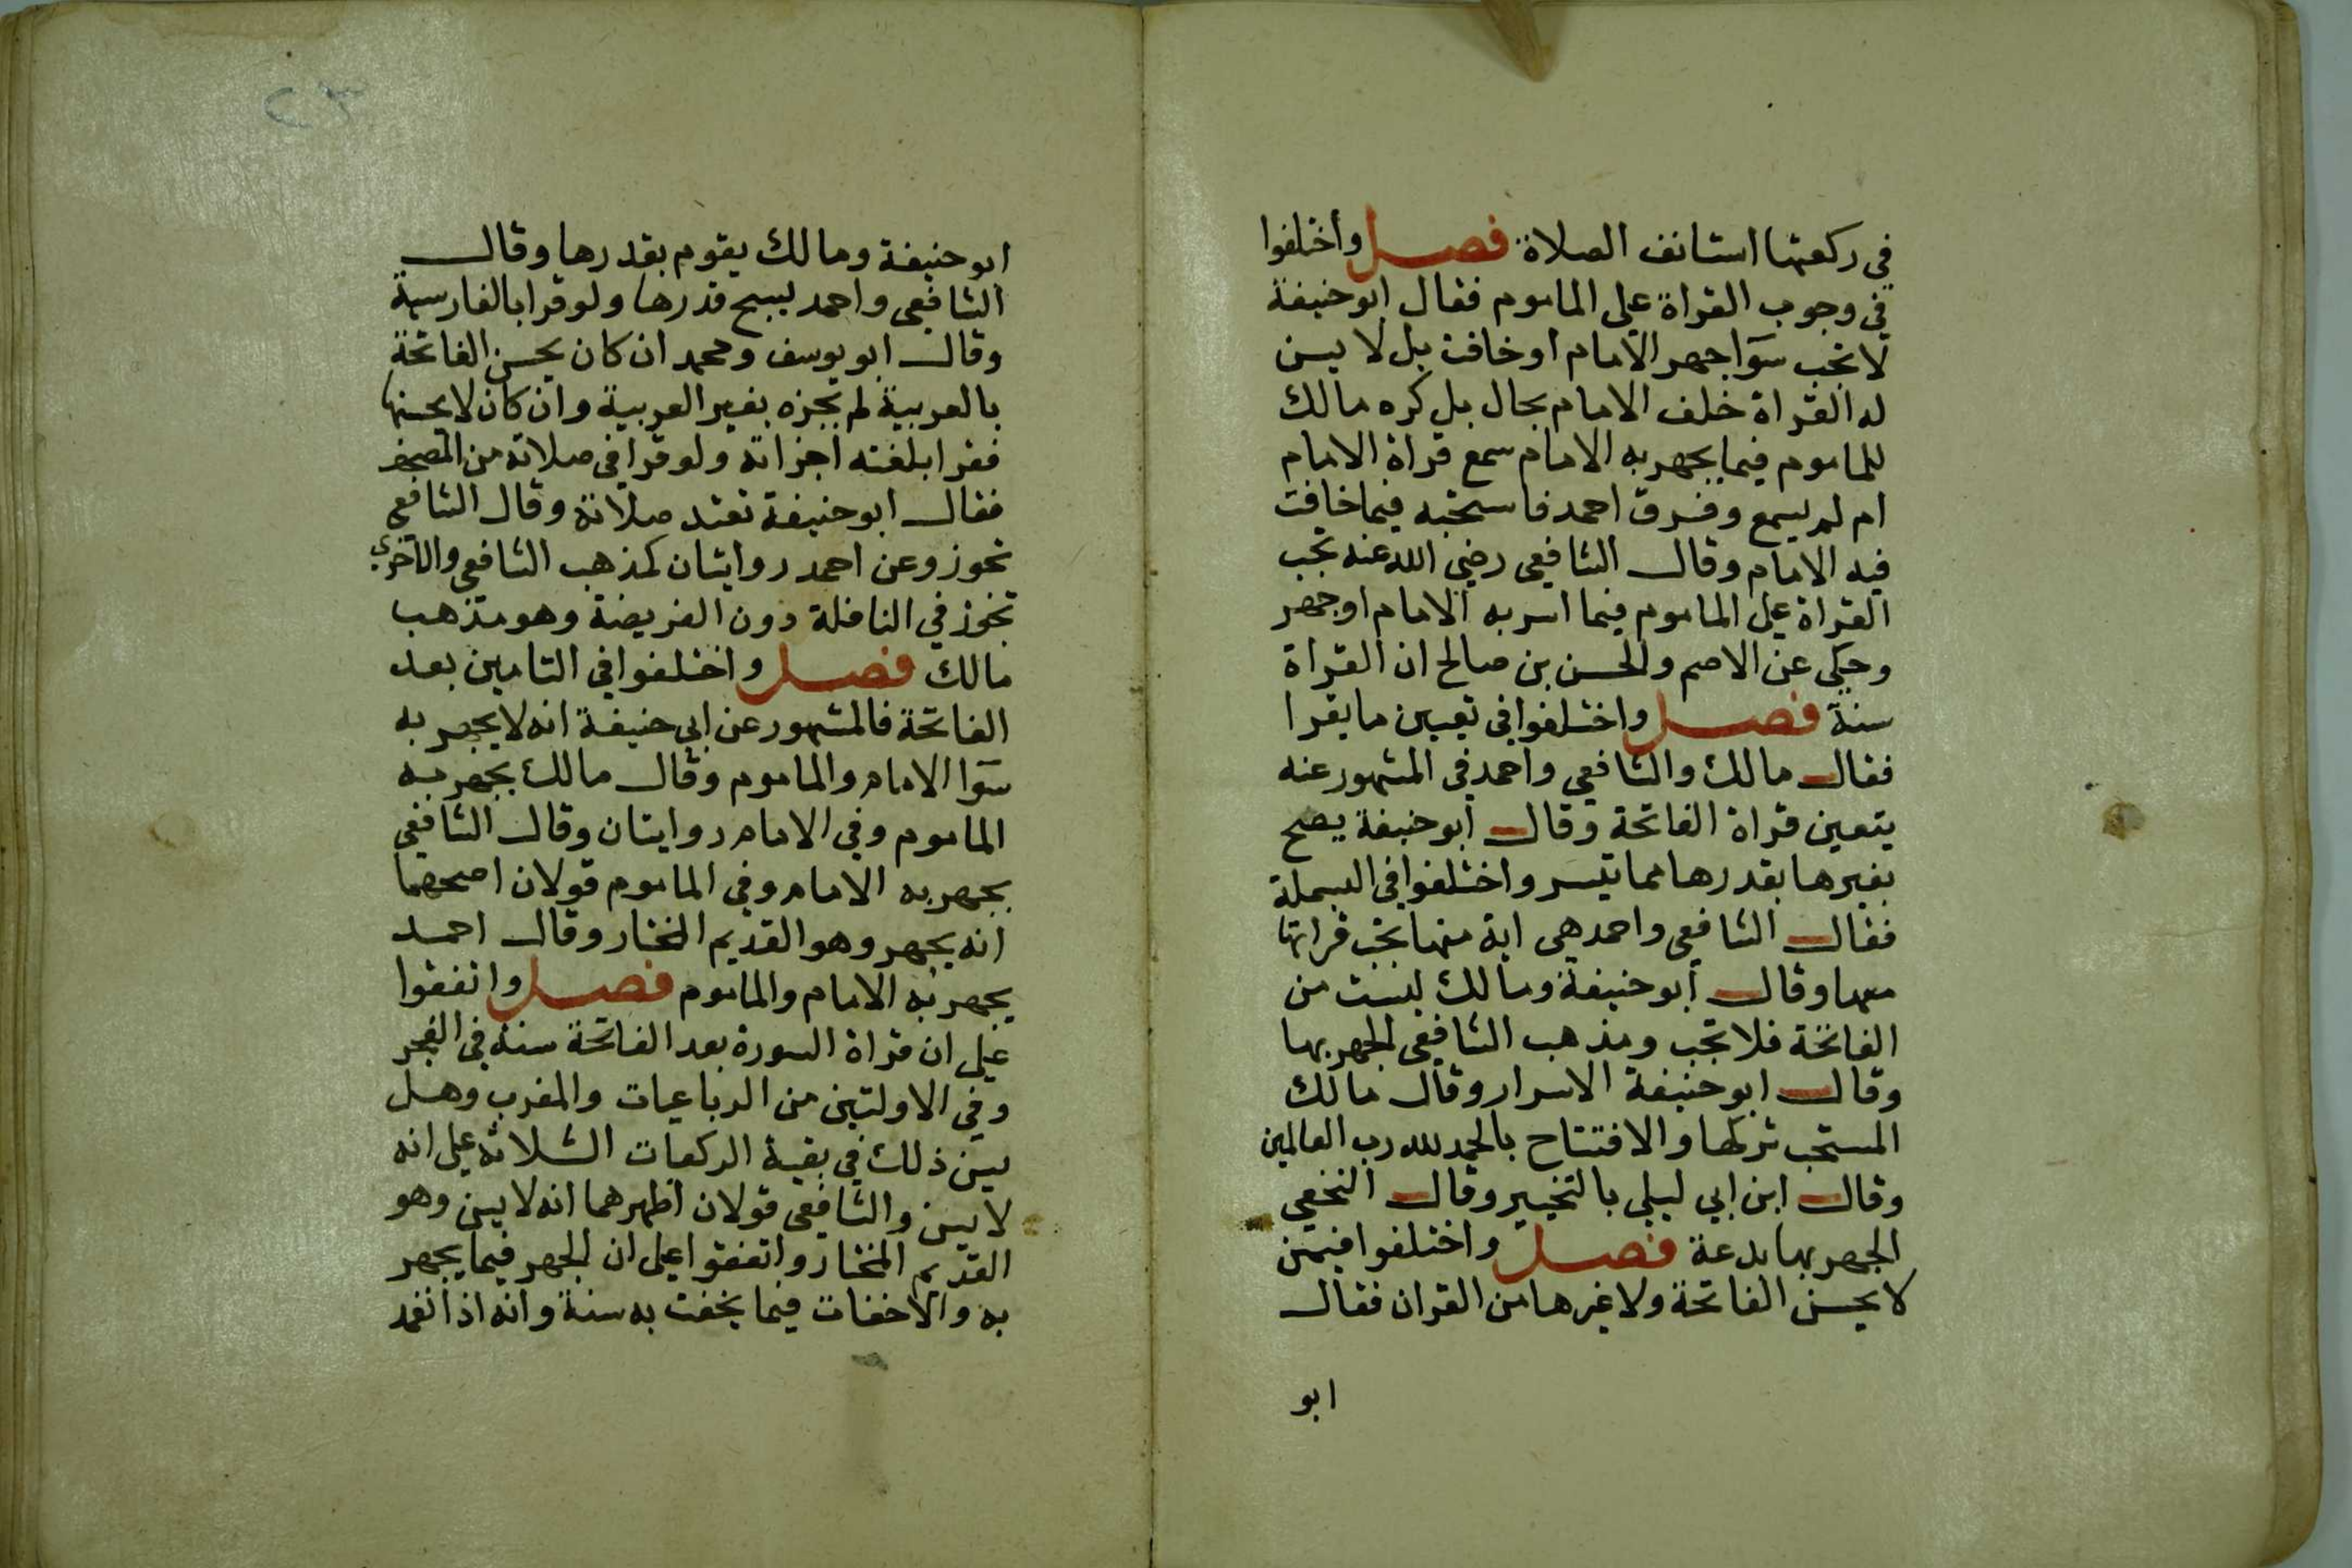 في ركعتها استانف الصلاة فصل واختلفوا
في وجوب القراة على الماموم فقال ابو حنيفة
لا تجب سوا جهر الامام او خافت بل لا يسن
له القراة خلف الامام بحال بل كره مالك
للماموم فيما يجهر به الامام سمع قراة الامام
ام لم يسمع وفرق احمد فاستحبه فيما خافت
فيه الامام وقال الشافعي رضي الله عنه تجب
القراة على الماموم فيما اسر به الامام او جهر
وحكي عن الاصم والحسن بن صالح ان القراة
سنة فصل واختلفوا في تعيين ما يقرا
فقال مالك والشافعي واحمد في المشهور عنه
يتعين قراة الفاتحة وقال ابو حنيفة يصح
بغيرها بقدرها مما تيسر واختلفوا في البسملة
فقال الشافعي واحمد هي اية منها تجب قراتها
معها وقال ابو حنيفة ومالك ليست من
الفاتحة فلا تجب ومذهب الشافعي الجهر بها
وقال ابو حنيفة الاسرار وقال مالك
المستحب تركها والافتتاح بالحمد لله رب العالمين
وقال ابن ابي ليلى بالتخيير وقال النخعي
الجهر بها بدعة فصل واختلفوا فيمن
لا يحسن الفاتحة ولا غيرها من القران فقال
ابو
٢٣
ابو حنيفة ومالك يقوم بقدرها وقال
الشافعي واحمد يسبح قدرها ولو قرا بالفارسية
وقال ابو يوسف ومحمد ان كان يحسن الفاتحة
بالعربية لم تجزه بغير العربية وان كان لا يحسنها
فقرا بلغته اجزاته ولو قرا في صلاته من المصحف
فقال ابو حنيفة تفسد صلاته وقال الشافعي
تجوز وعن احمد روايتان كمذهب الشافعي والاخرى
تجوز في النافلة دون الفريضة وهو مذهب
مالك فصل واختلفوا في التامين بعد
الفاتحة فالمشهور عن ابي حنيفة انه لا يجهر به
سوا الامام والماموم وقال مالك يجهر به
الماموم وفي الامام روايتان وقال الشافعي
يجهر به الامام وفي الماموم قولان اصحهما
انه يجهر وهو القديم المختار وقال احمد
يجهر به الامام والماموم فصل واتفقوا
على ان قراة السورة بعد الفاتحة سنة في الفجر
وفي الاولتين من الرباعيات والمغرب وهل
يسن ذلك في بقية الركعات الثلاثة على انه
لا يسن والشافعي قولان اظهرهما انه لا يسن وهو
القديم المختار واتفقوا على ان الجهر فيما يجهر
به والاخفات فيما يخفت به سنة وانه اذا نعمد